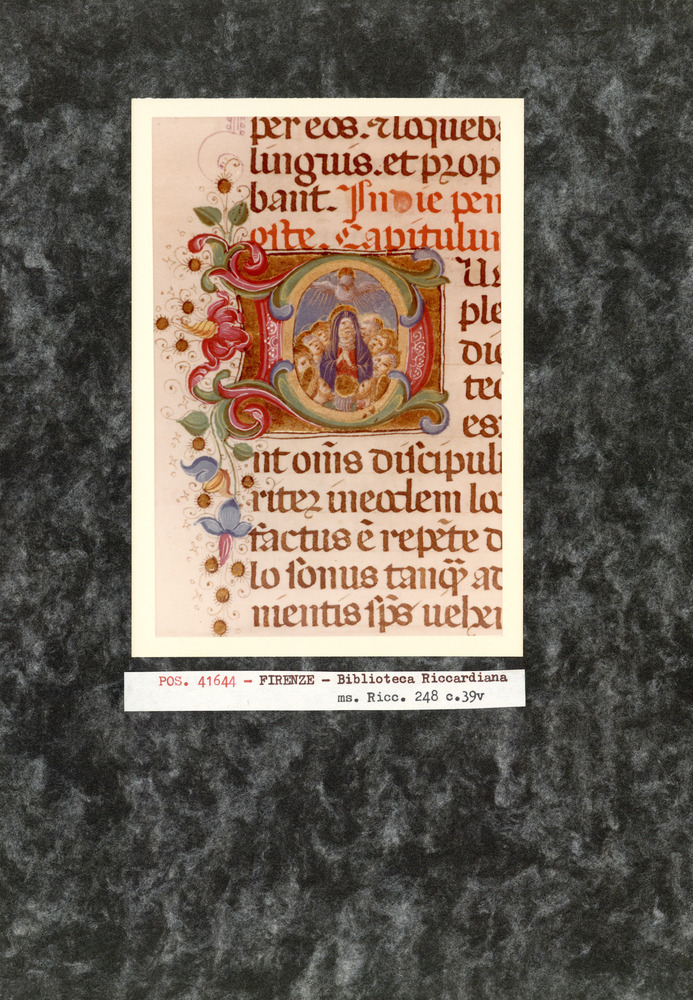 per eos. ⁊ loqueb
linguis. et prop
bant. In die pen
oste. Capitulum
Um
ple
die
tec
es
nt om̅s discipuli
riter in eodem loc
factus e̅ repe̅te d
lo sonus tanq̅ ad
nientis sp̅s uehe
POS. 41644 - FIRENZE - Biblioteca Riccardiana
ms. Ricc. 248 c.39v